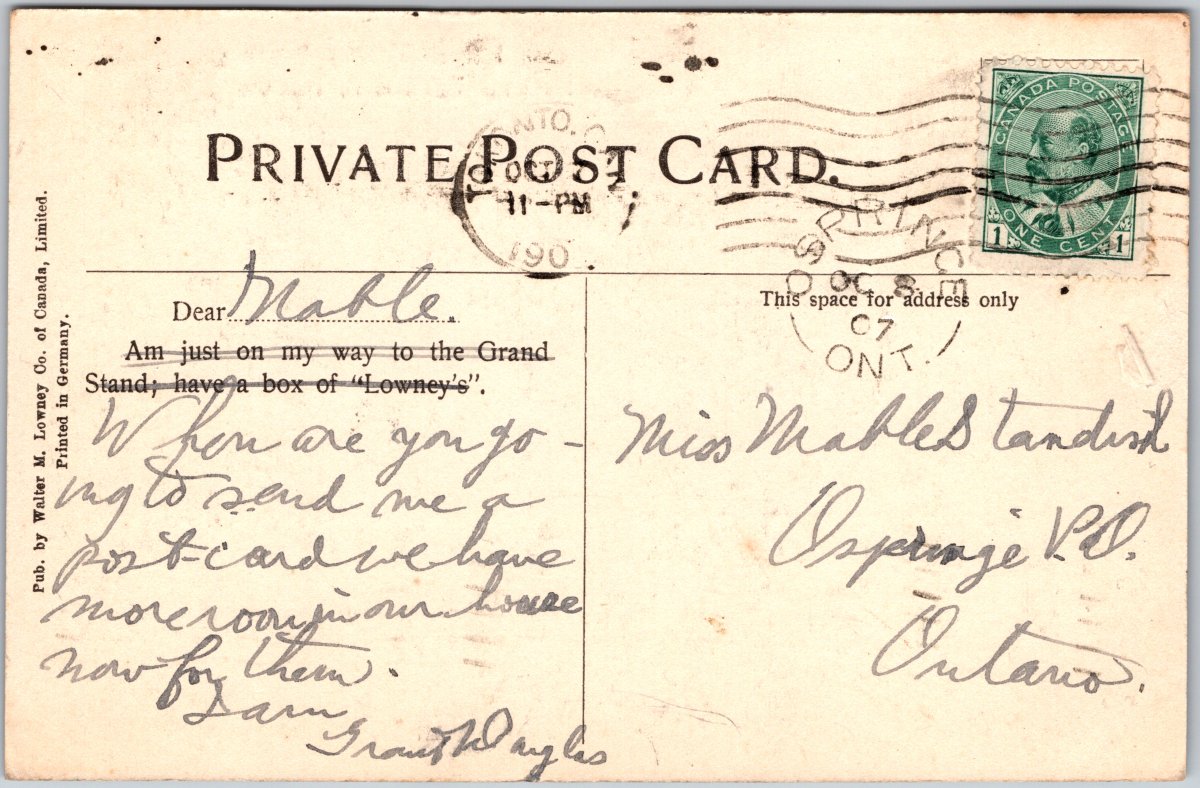 PRIVATE POST CARD.
TORONTO, O
OCT
11-PM
190
CANADA POSTAGE
ONE CENT
1 1
OSPRINGE
OC 8
07
ONT.
Pub. by Walter M. Lowney Co. of Canada, Limited.
Printed in Germany.
Dear Mable.
Am just on my way to the Grand
Stand; have a box of "Lowney's".
When are you go-
ing to send me a
post-card we have
more room in our house
now for them.
This space for address only
Miss Mable Standish
Ospringe P.O.
Ontario.